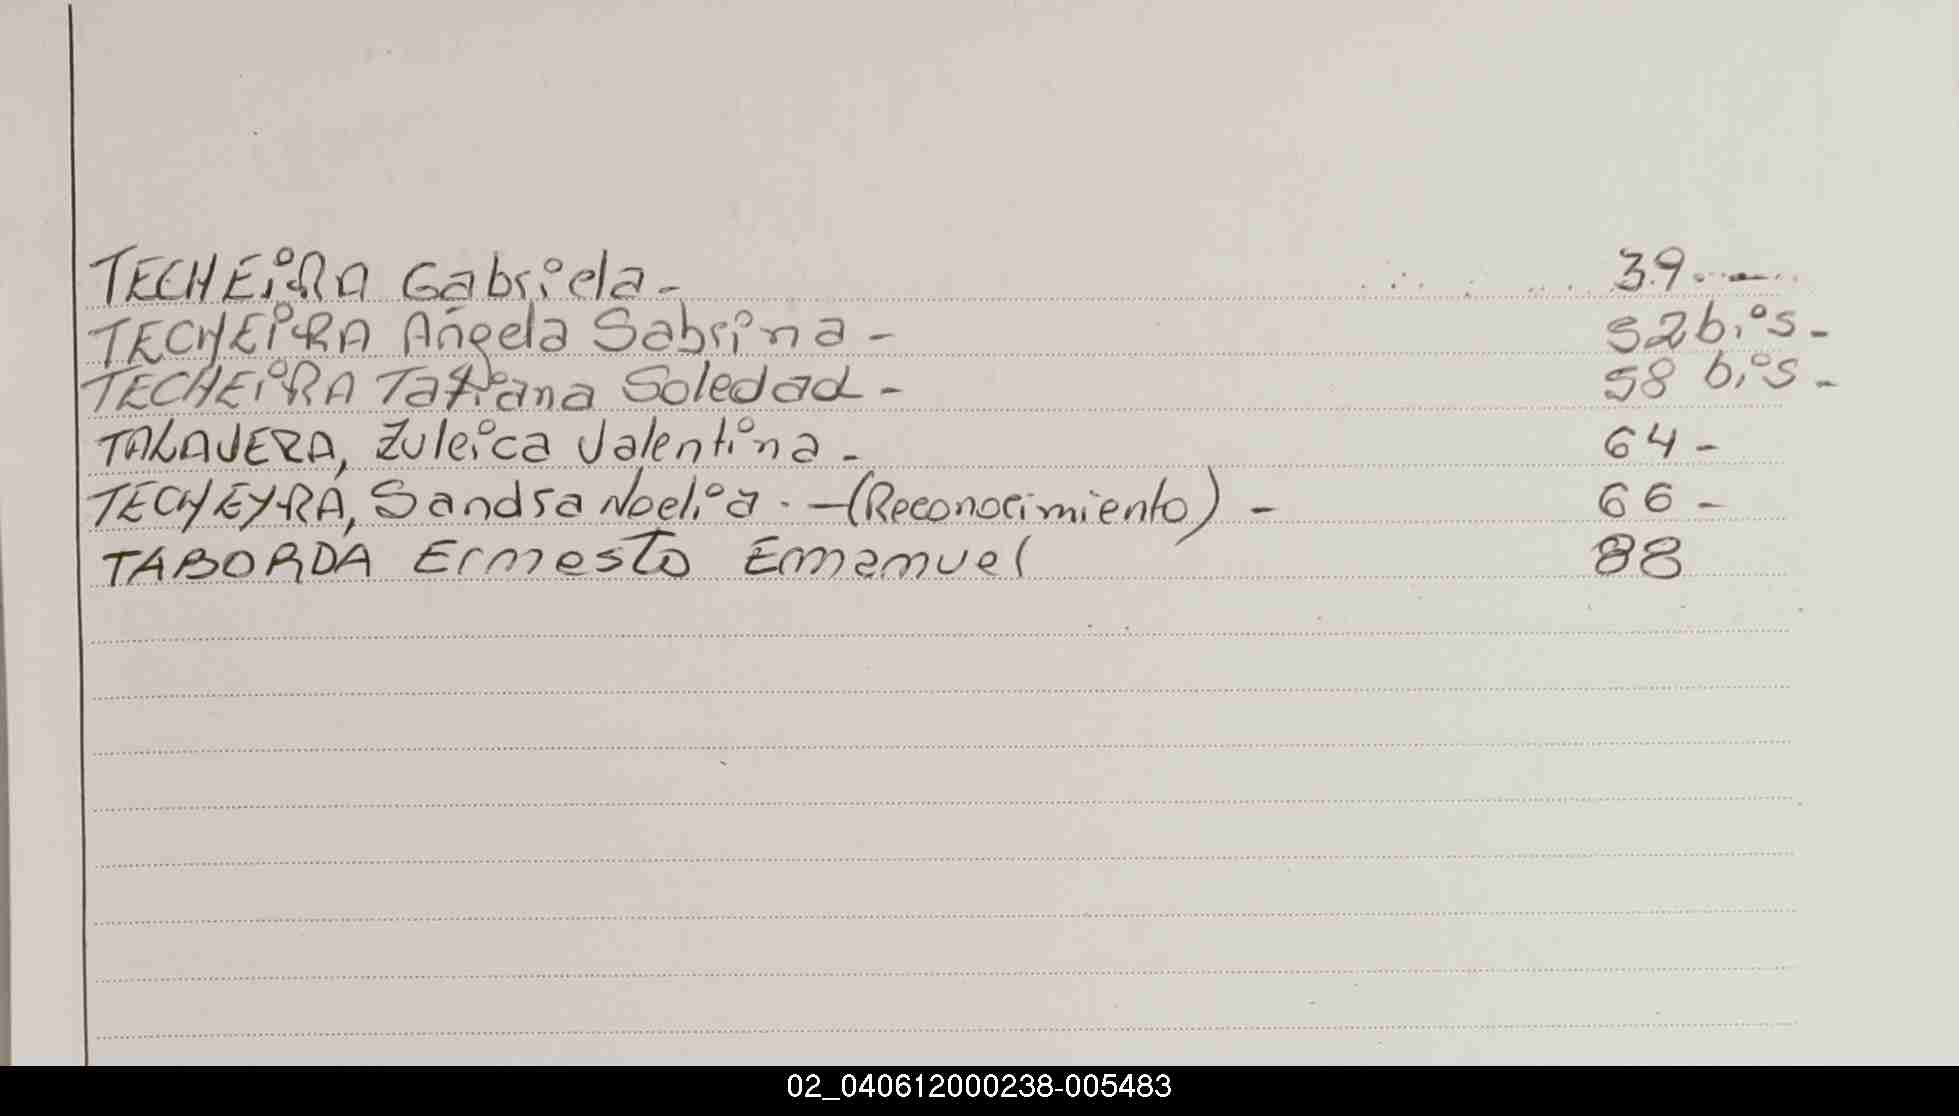 TECHEIRA Gabriela - 39. -
TECHEIRA Angela Sabrina - 52 bis -
TECHEIRA Tatiana Soledad - 58 bis -
TALAVERA, Zuleica Valentina - 64 -
TECHEYRA, Sandra Noelia. - (Reconocimiento) - 66 -
TABORDA Ernesto Emanuel 88
02_040612000238-005483